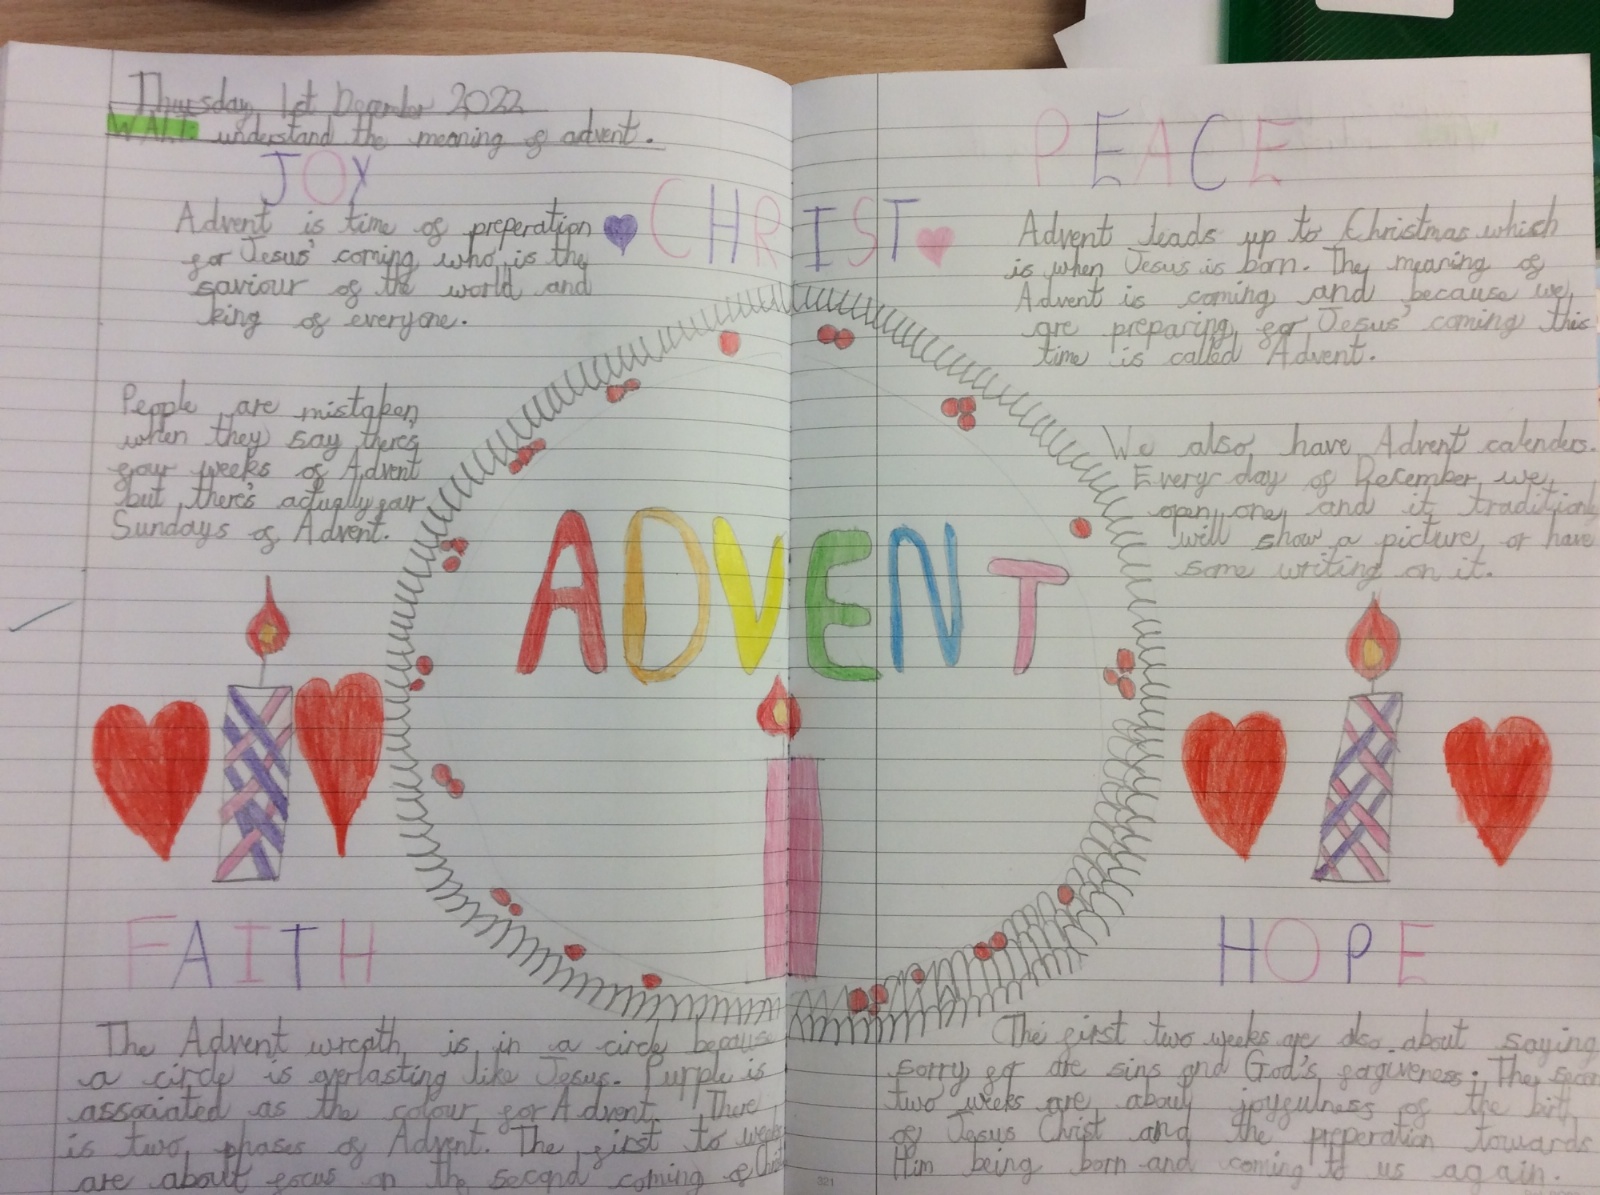 Thursday 1st December 2022
WALT: understand the meaning of advent.
JOY
Advent is time of preperation
for Jesus' coming who is the
saviour of the world and
king of everyone.
People are mistaken
when they say there's
four weeks of Advent
but there's actually four
Sundays of Advent.
CHRIST
PEACE
Advent leads up to Christmas which
is when Jesus is born. The meaning of
Advent is coming and because we
are preparing for Jesus' coming this
time is called Advent.
We also have Advent calenders.
Every day of December we
open one and it tradition
will show a picture or have
some writing on it.
ADVENT
FAITH
HOPE
The Advent wreath is in a circle because
a circle is everlasting like Jesus. Purple is
associated as the colour for Advent. There
is two phases of Advent. The first to weeks
are about focus on the second coming of Christ
The first two weeks are also about saying
sorry for are sins and God's forgiveness. The
two weeks are about joyfulness of the birt
of Jesus Christ and the preperation towards
Him being born and coming to us again.
321